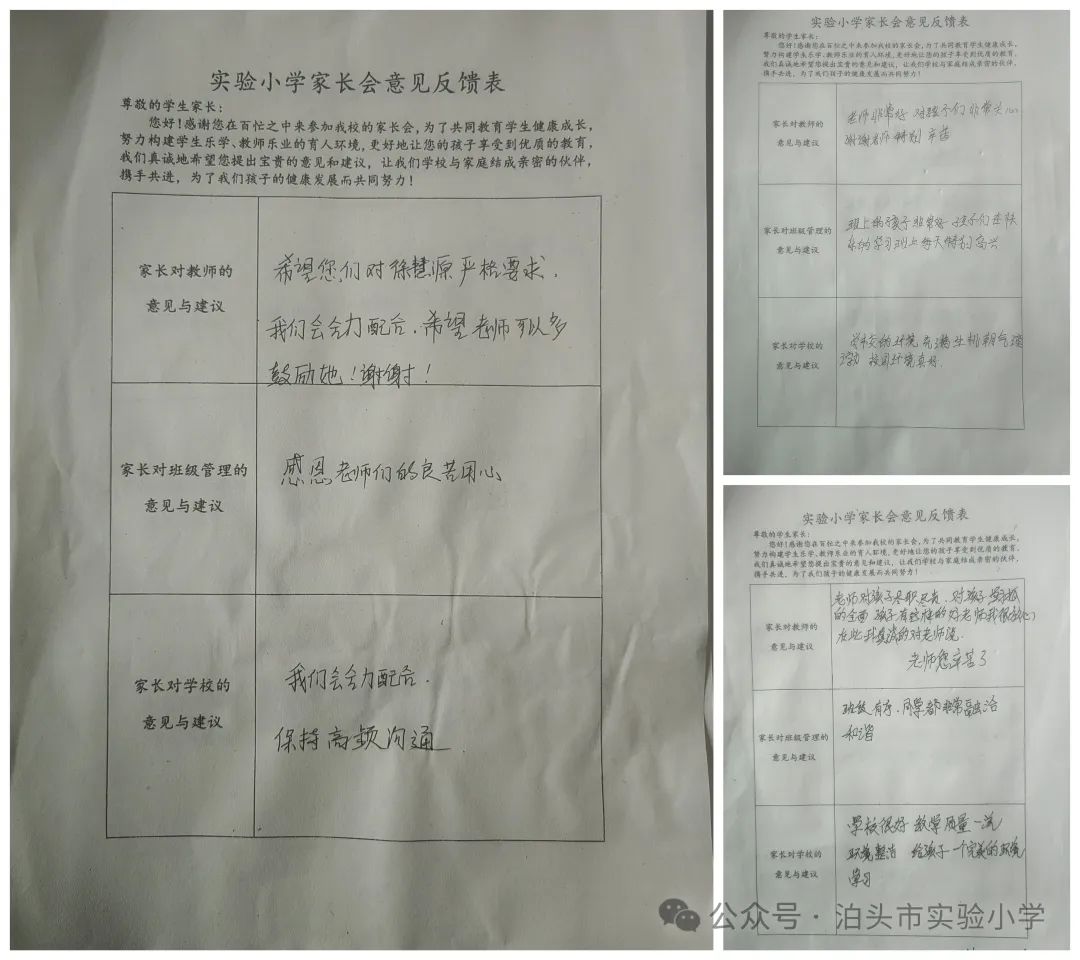 实验小学家长会意见反馈表
尊敬的学生家长:
您好!感谢您在百忙之中来参加我校的家长会,为了共同教育学生健康成长,
努力构建学生乐学、教师乐业的育人环境,更好地让您的孩子享受到优质的教育,
我们真诚地希望您提出宝贵的意见和建议,让我们学校与家庭结成亲密的伙伴,
携手共进,为了我们孩子的健康发展而共同努力!
家长对教师的
意见与建议
希望您们对徐慧源严格要求.
我们会全力配合.希望老师可以多
鼓励她!谢谢!
家长对班级管理的
意见与建议
感恩老师们的良苦用心
家长对学校的
意见与建议
我们会全力配合.
保持高频沟通
实验小学家长会意见反馈表
尊敬的学生家长:
您好!感谢您在百忙之中来参加我校的家长会,为了共同教育学生健康成长,
努力构建学生乐学、教师乐业的育人环境,更好地让您的孩子享受到优质的教育,
我们真诚地希望您提出宝贵的意见和建议,让我们学校与家庭结成亲密的伙伴,
携手共进,为了我们孩子的健康发展而共同努力!
家长对教师的
意见与建议
老师非常好 对孩子们非常关心
谢谢老师 特别辛苦
家长对班级管理的
意见与建议
班上的孩子非常好 孩子们在快
乐的学习 班上每天特别高兴
家长对学校的
意见与建议
学校的环境充满生机朝气
校园环境真好.
实验小学家长会意见反馈表
尊敬的学生家长:
您好!感谢您在百忙之中来参加我校的家长会,为了共同教育学生健康成长,
努力构建学生乐学、教师乐业的育人环境,更好地让您的孩子享受到优质的教育,
我们真诚地希望您提出宝贵的意见和建议,让我们学校与家庭结成亲密的伙伴,
携手共进,为了我们孩子的健康发展而共同努力!
家长对教师的
意见与建议
老师对孩子尽职尽责.对孩子
的全面 孩子有这样的好老师我很放心
在此我真诚的对老师说.
老师您辛苦了
家长对班级管理的
意见与建议
班级有序.同学都非常融洽
和谐
家长对学校的
意见与建议
学校很好 教学质量一流
环境整洁 给孩子一个完美的环境
学习
公众号·泊头市实验小学